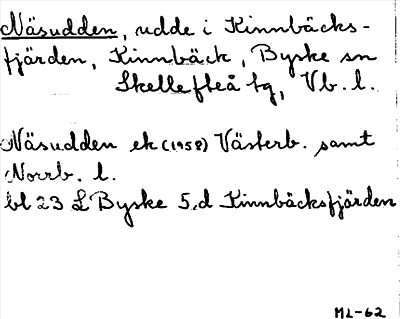 Näsudden, udde i Kinnbäcks-
fjärden, Kinnbäck, Byske sn
Skellefteå tg, Vb. l.
Näsudden ek (1958) Västerb. samt
Norrb. l.
bl 23 L Byske 5.d Kinnbäcksfjärden
ML-62